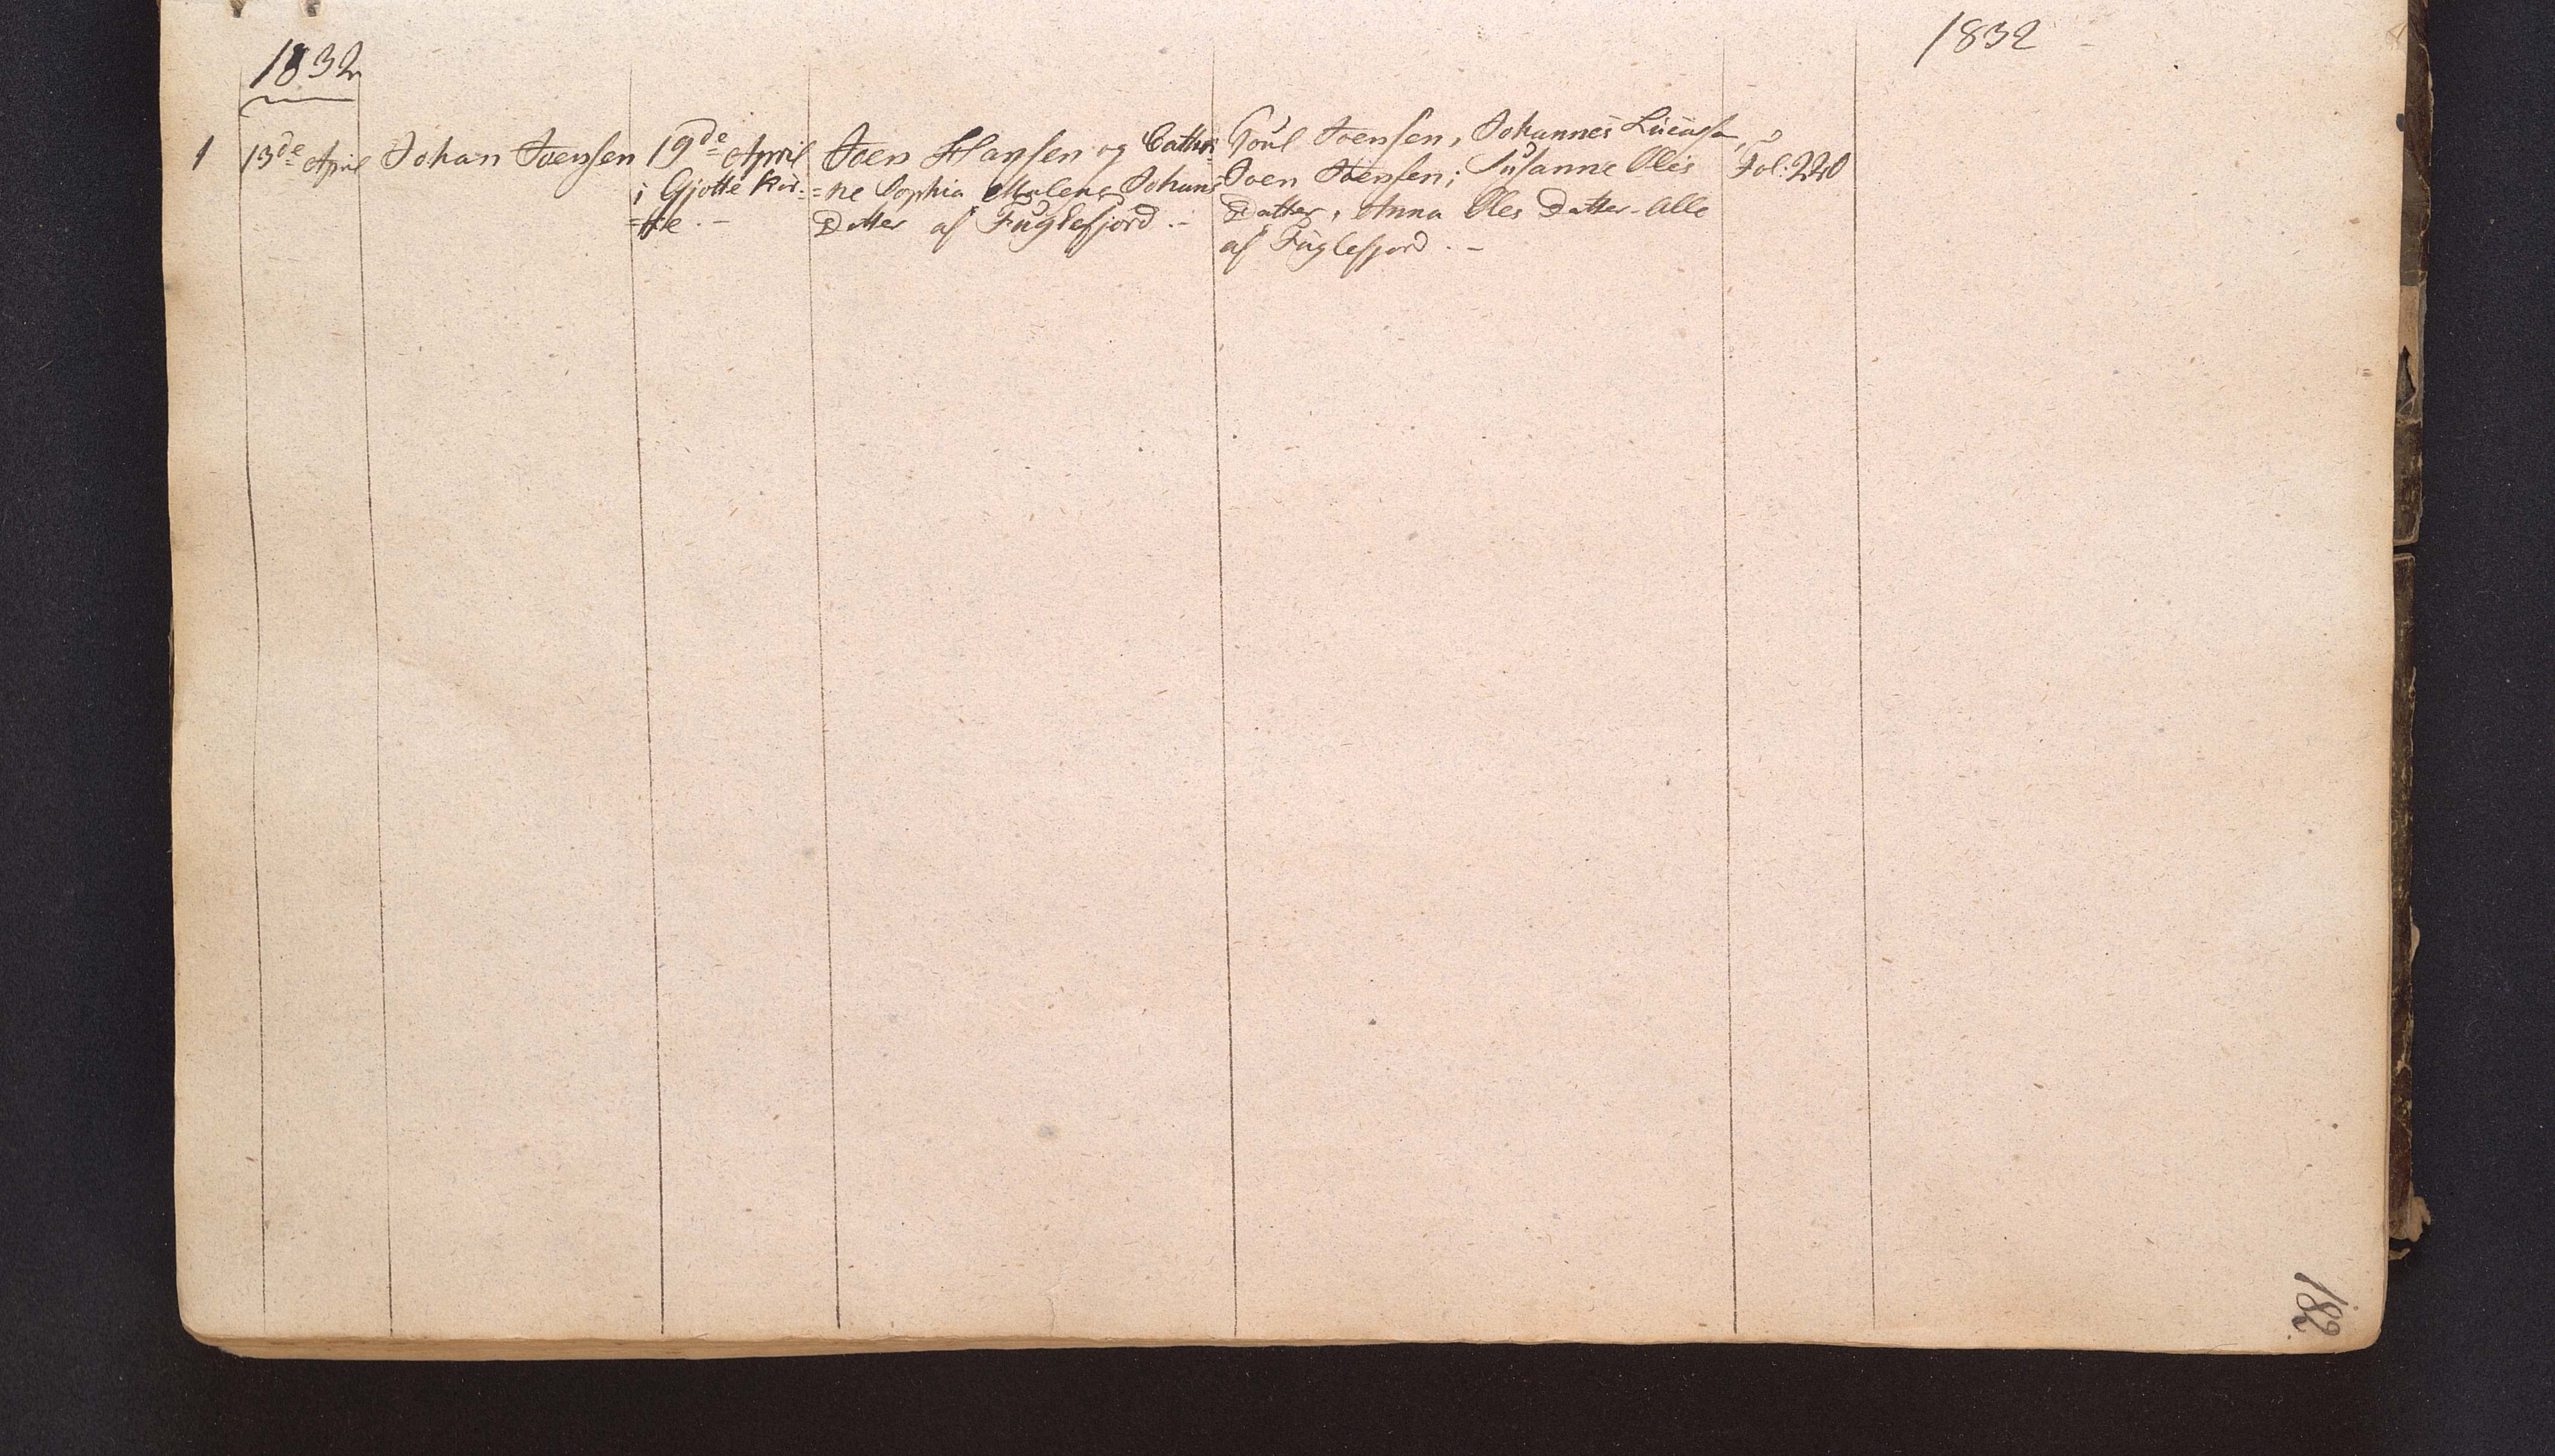 1832
1832
1
13de April
Johan Joensen
19de April
i Gjotte Kir-
=ke. -
Joen Hansen og Cathri
=ne Sophia Malene Johans
Datter af Fuglefjord. -
Poul Joensen, Johannes Lucassen,
Joen Joensen; Susanne Oles
Datter, Anna Oles Datter - Alle
af Fuglefjord. -
Fol: 220
182.